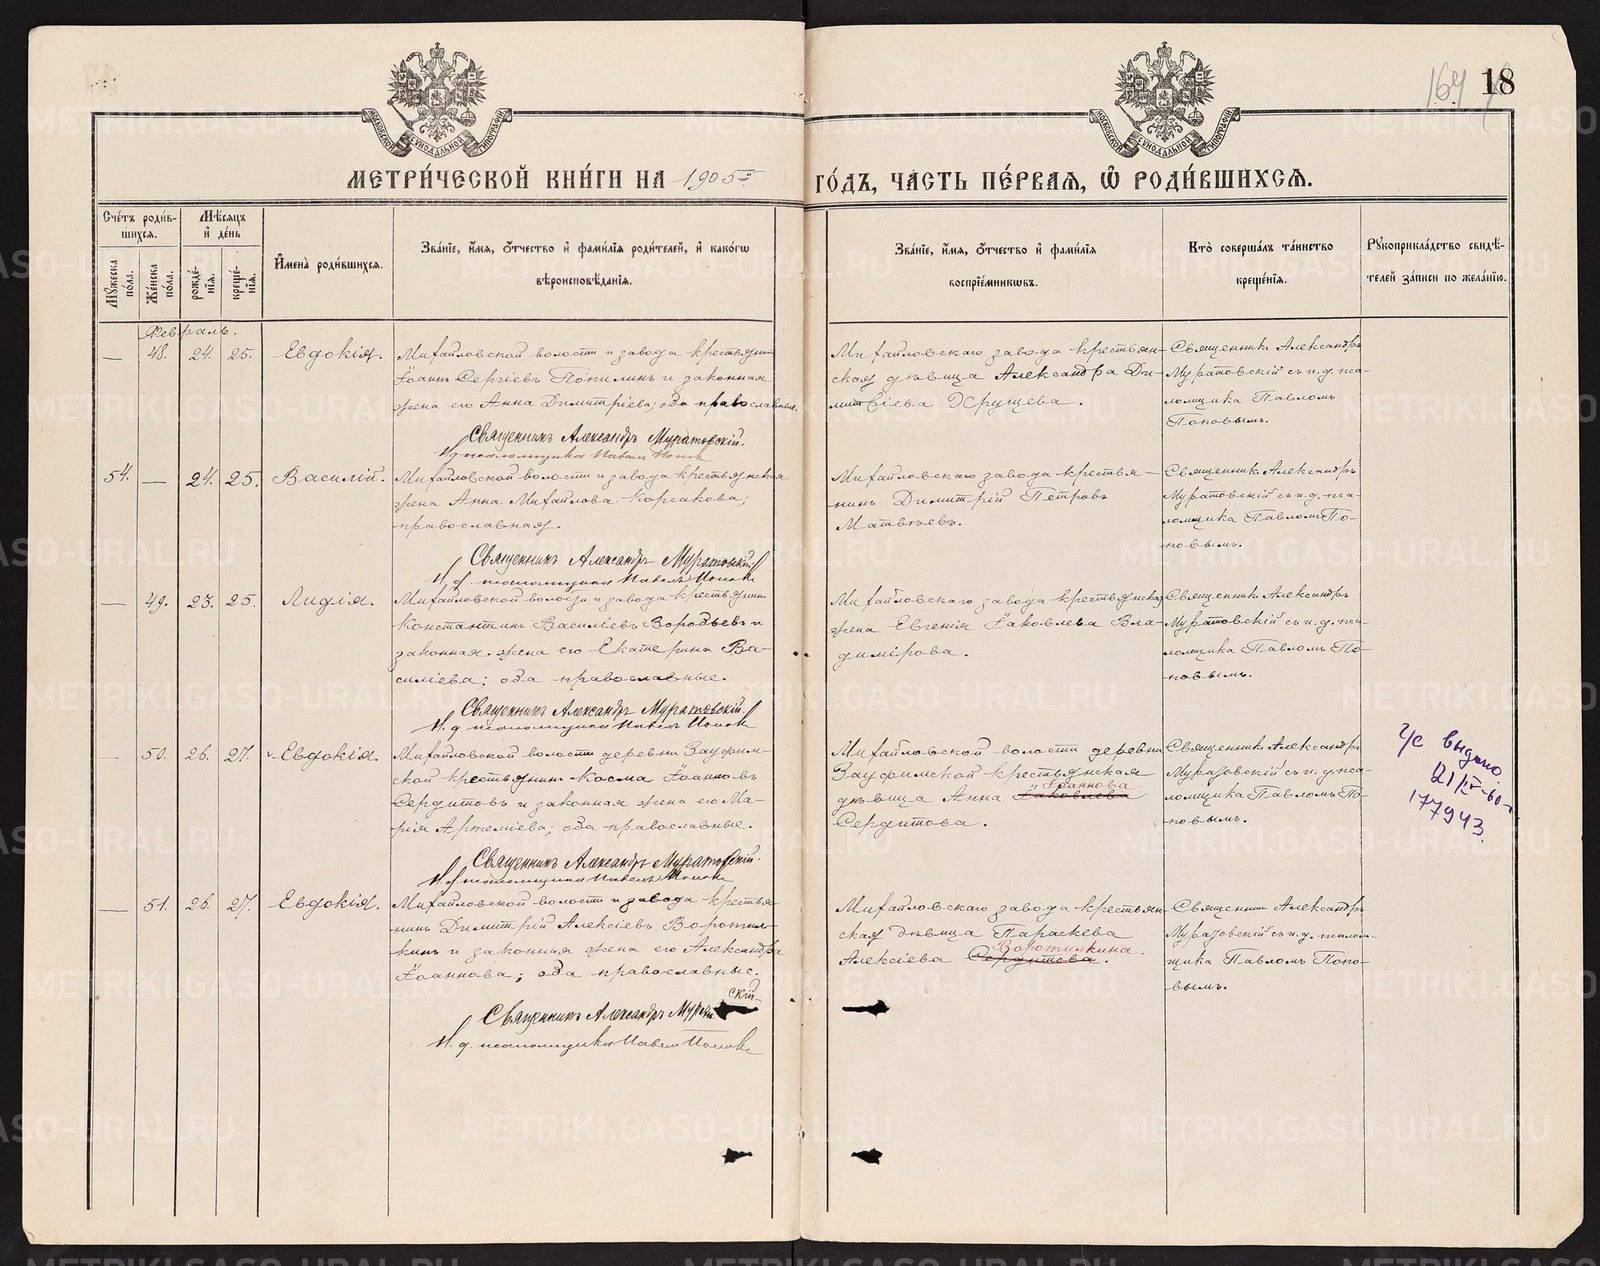 164
18
МЕТРИ́ЧЕСКОЙ КНИ́ГИ НА 1905й ГО́ДЪ, ЧА́СТЬ ПЕ́РВАЯ, Ѽ РОДИ́ВШИХСЯ.
Сче́тъ роди́в-
шихся.
Му́жеска по́ла.
Же́нска по́ла.
Мѣ́сяцъ
и҆ де́нь
рожде́-
нїя.
креще́-
нїя.
И҆мена̀ роди́вшихся.
Зва́нїе, и҆́мя, ѻ҆́тчество и҆ фами́лїя роди́телей, и҆ како́гѡ
вѣроисповѣ́данїя.
Зва́нїе, и҆́мя, ѻ҆́тчество и҆ фами́лїя
воспрїе́мникѡвъ.
Кто̀ соверша́лъ та́инство
креще́нїя.
Рꙋкоприкла́дство свидѣ́-
телей за́писи по жела́нїю.
Февраль.
— 48. 24. 25. Евдокія.
Михайловской волости и завода крестьянинъ
Іоаннъ Сергіевъ Попилинъ и законная
жена его Анна Димитріева; оба православные.
Священникъ Александръ Муратовскій.
И. д. псаломщика Павелъ Поповъ
Михайловскаго завода крестьян-
ская дѣвица Александра Ди-
митріева Хрущева.
Священникъ Александръ
Муратовскій съ и. д. пса-
ломщика Павломъ
Поповымъ.
54. — 24. 25. Василій.
Михайловской волости и завода крестьянская
жена Анна Михайлова Корсакова;
православная.
Священникъ Александръ Муратовскій
И. д. псаломщика Павелъ Поповъ
Михайловскаго завода крестья-
нинъ Димитрій Петровъ
Матвѣевъ.
Священникъ Александръ
Муратовскій съ и. д. пса-
ломщика Павломъ По-
повымъ.
— 49. 23. 25. Лидія.
Михайловской волости и завода крестьянинъ
Константинъ Василіевъ Воробьевъ и
законная жена его Екатерина Ва-
силіева; оба православные.
Священникъ Александръ Муратовскій
И. д. псаломщика Павелъ Поповъ
Михайловскаго завода крестьянская
жена Евгенія Іаковлева Вла-
димірова.
Священникъ Александръ
Муратовскій съ и. д. пса-
ломщика Павломъ По-
повымъ.
— 50. 26. 27. Евдокія.
Михайловской волости деревни Зауфим-
ской крестьянинъ Косма Іоанновъ
Сердитовъ и законная жена его Ма-
рія Артеміева; оба православные.
Священникъ Александръ Муратовскій.
И. д. псаломщика Павелъ Поповъ
Михайловской волости деревни
Зауфимской крестьянская
дѣвица Анна Іаковлева Іоаннова
Сердитова.
Священникъ Александръ
Муратовскій съ и. д. пса-
ломщика Павломъ По-
повымъ.
с выдано
21/IV-60
177943
— 51. 26. 27. Евдокія.
Михайловской волости и завода крестья-
нинъ Димитрій Алексіевъ Воротил-
кинъ и законная жена его Александра
Іоаннова; оба православные.
Священникъ Александръ Муратовскій
И. д. псаломщика Павелъ Поповъ
Михайловскаго завода крестьян-
ская дѣвица Параскева
Алексіева Сердитова Воротилкина.
Священникъ Александръ
Муратовскій съ и. д. псалом-
щика Павломъ Попо-
вымъ.
METRIKI.GASO-URAL.RU